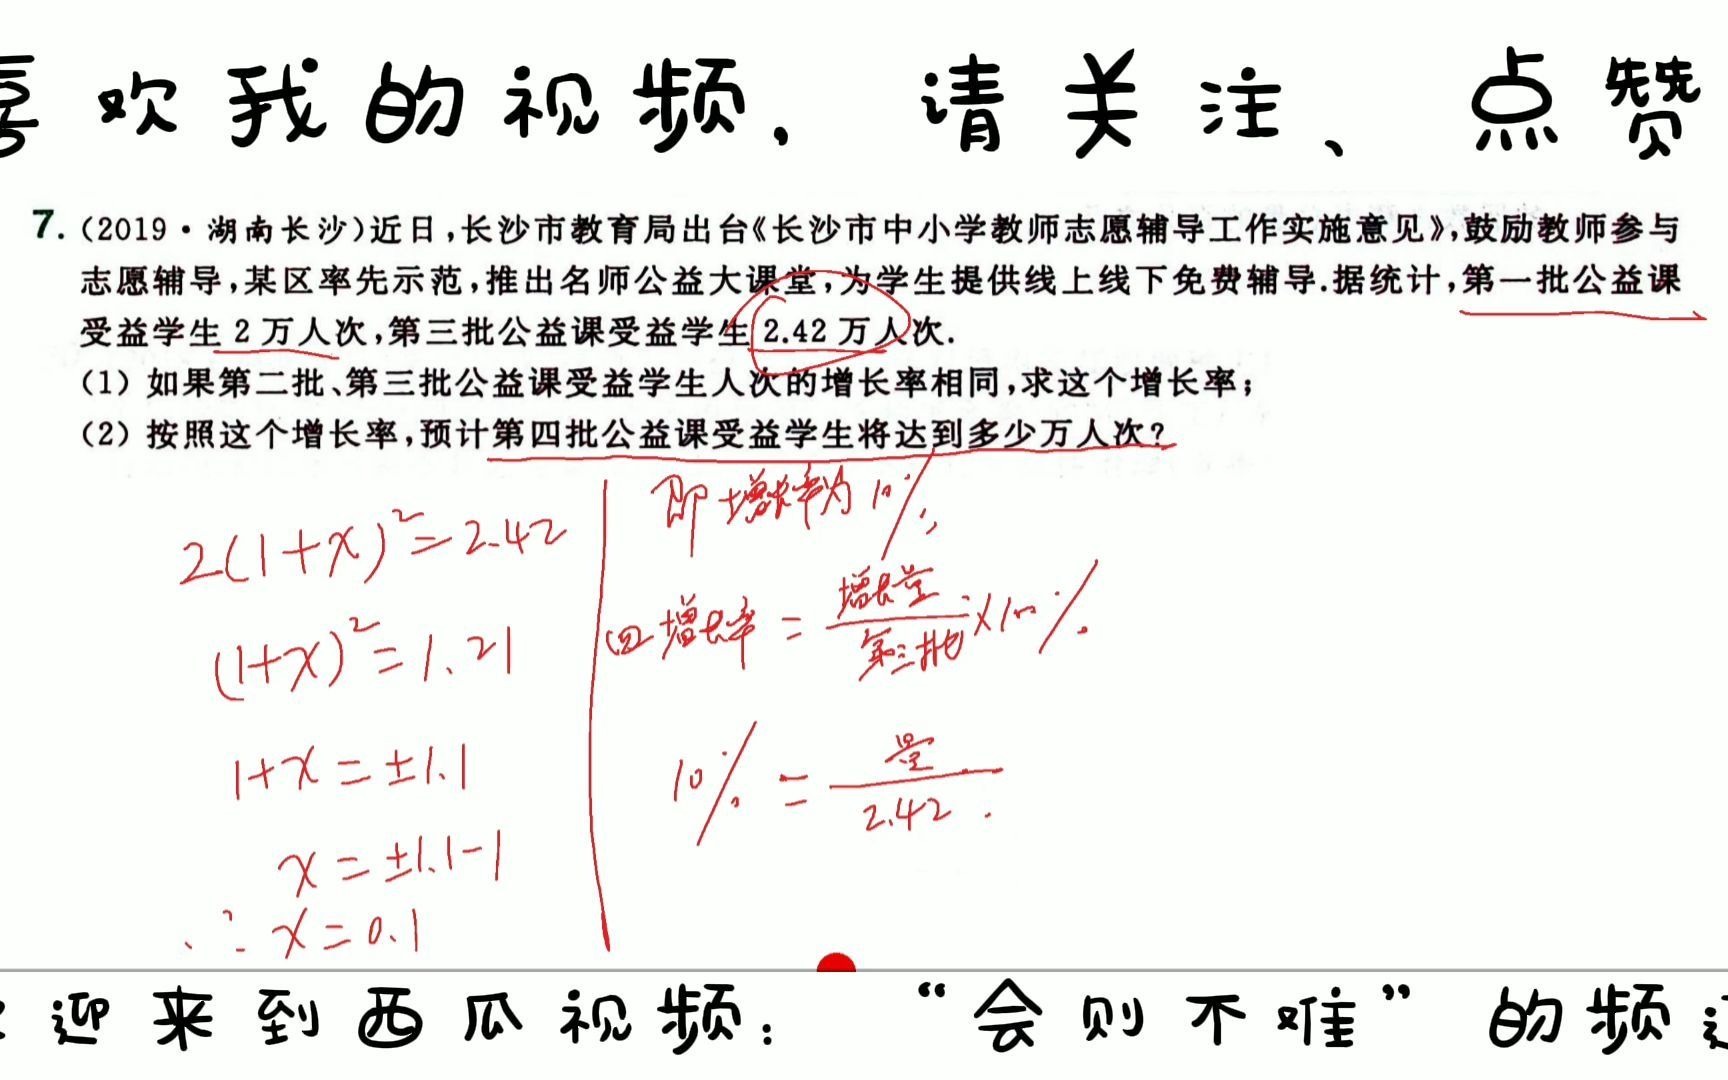 喜欢我的视频，请关注、点赞
7.(2019·湖南长沙)近日,长沙市教育局出台《长沙市中小学教师志愿辅导工作实施意见》,鼓励教师参与
志愿辅导,某区率先示范,推出名师公益大课堂,为学生提供线上线下免费辅导.据统计,第一批公益课
受益学生 2 万人次,第三批公益课受益学生 2.42 万人次.
(1) 如果第二批、第三批公益课受益学生人次的增长率相同,求这个增长率;
(2) 按照这个增长率,预计第四批公益课受益学生将达到多少万人次?
2(1+x)²=2.42
(1+x)²=1.21
1+x=±1.1
x=±1.1-1
∴x=0.1
即增长率为10%,
(2)增长率=增长量/第三批×100%
10%=量/2.42.
迎来到西瓜视频：“会则不难”的频